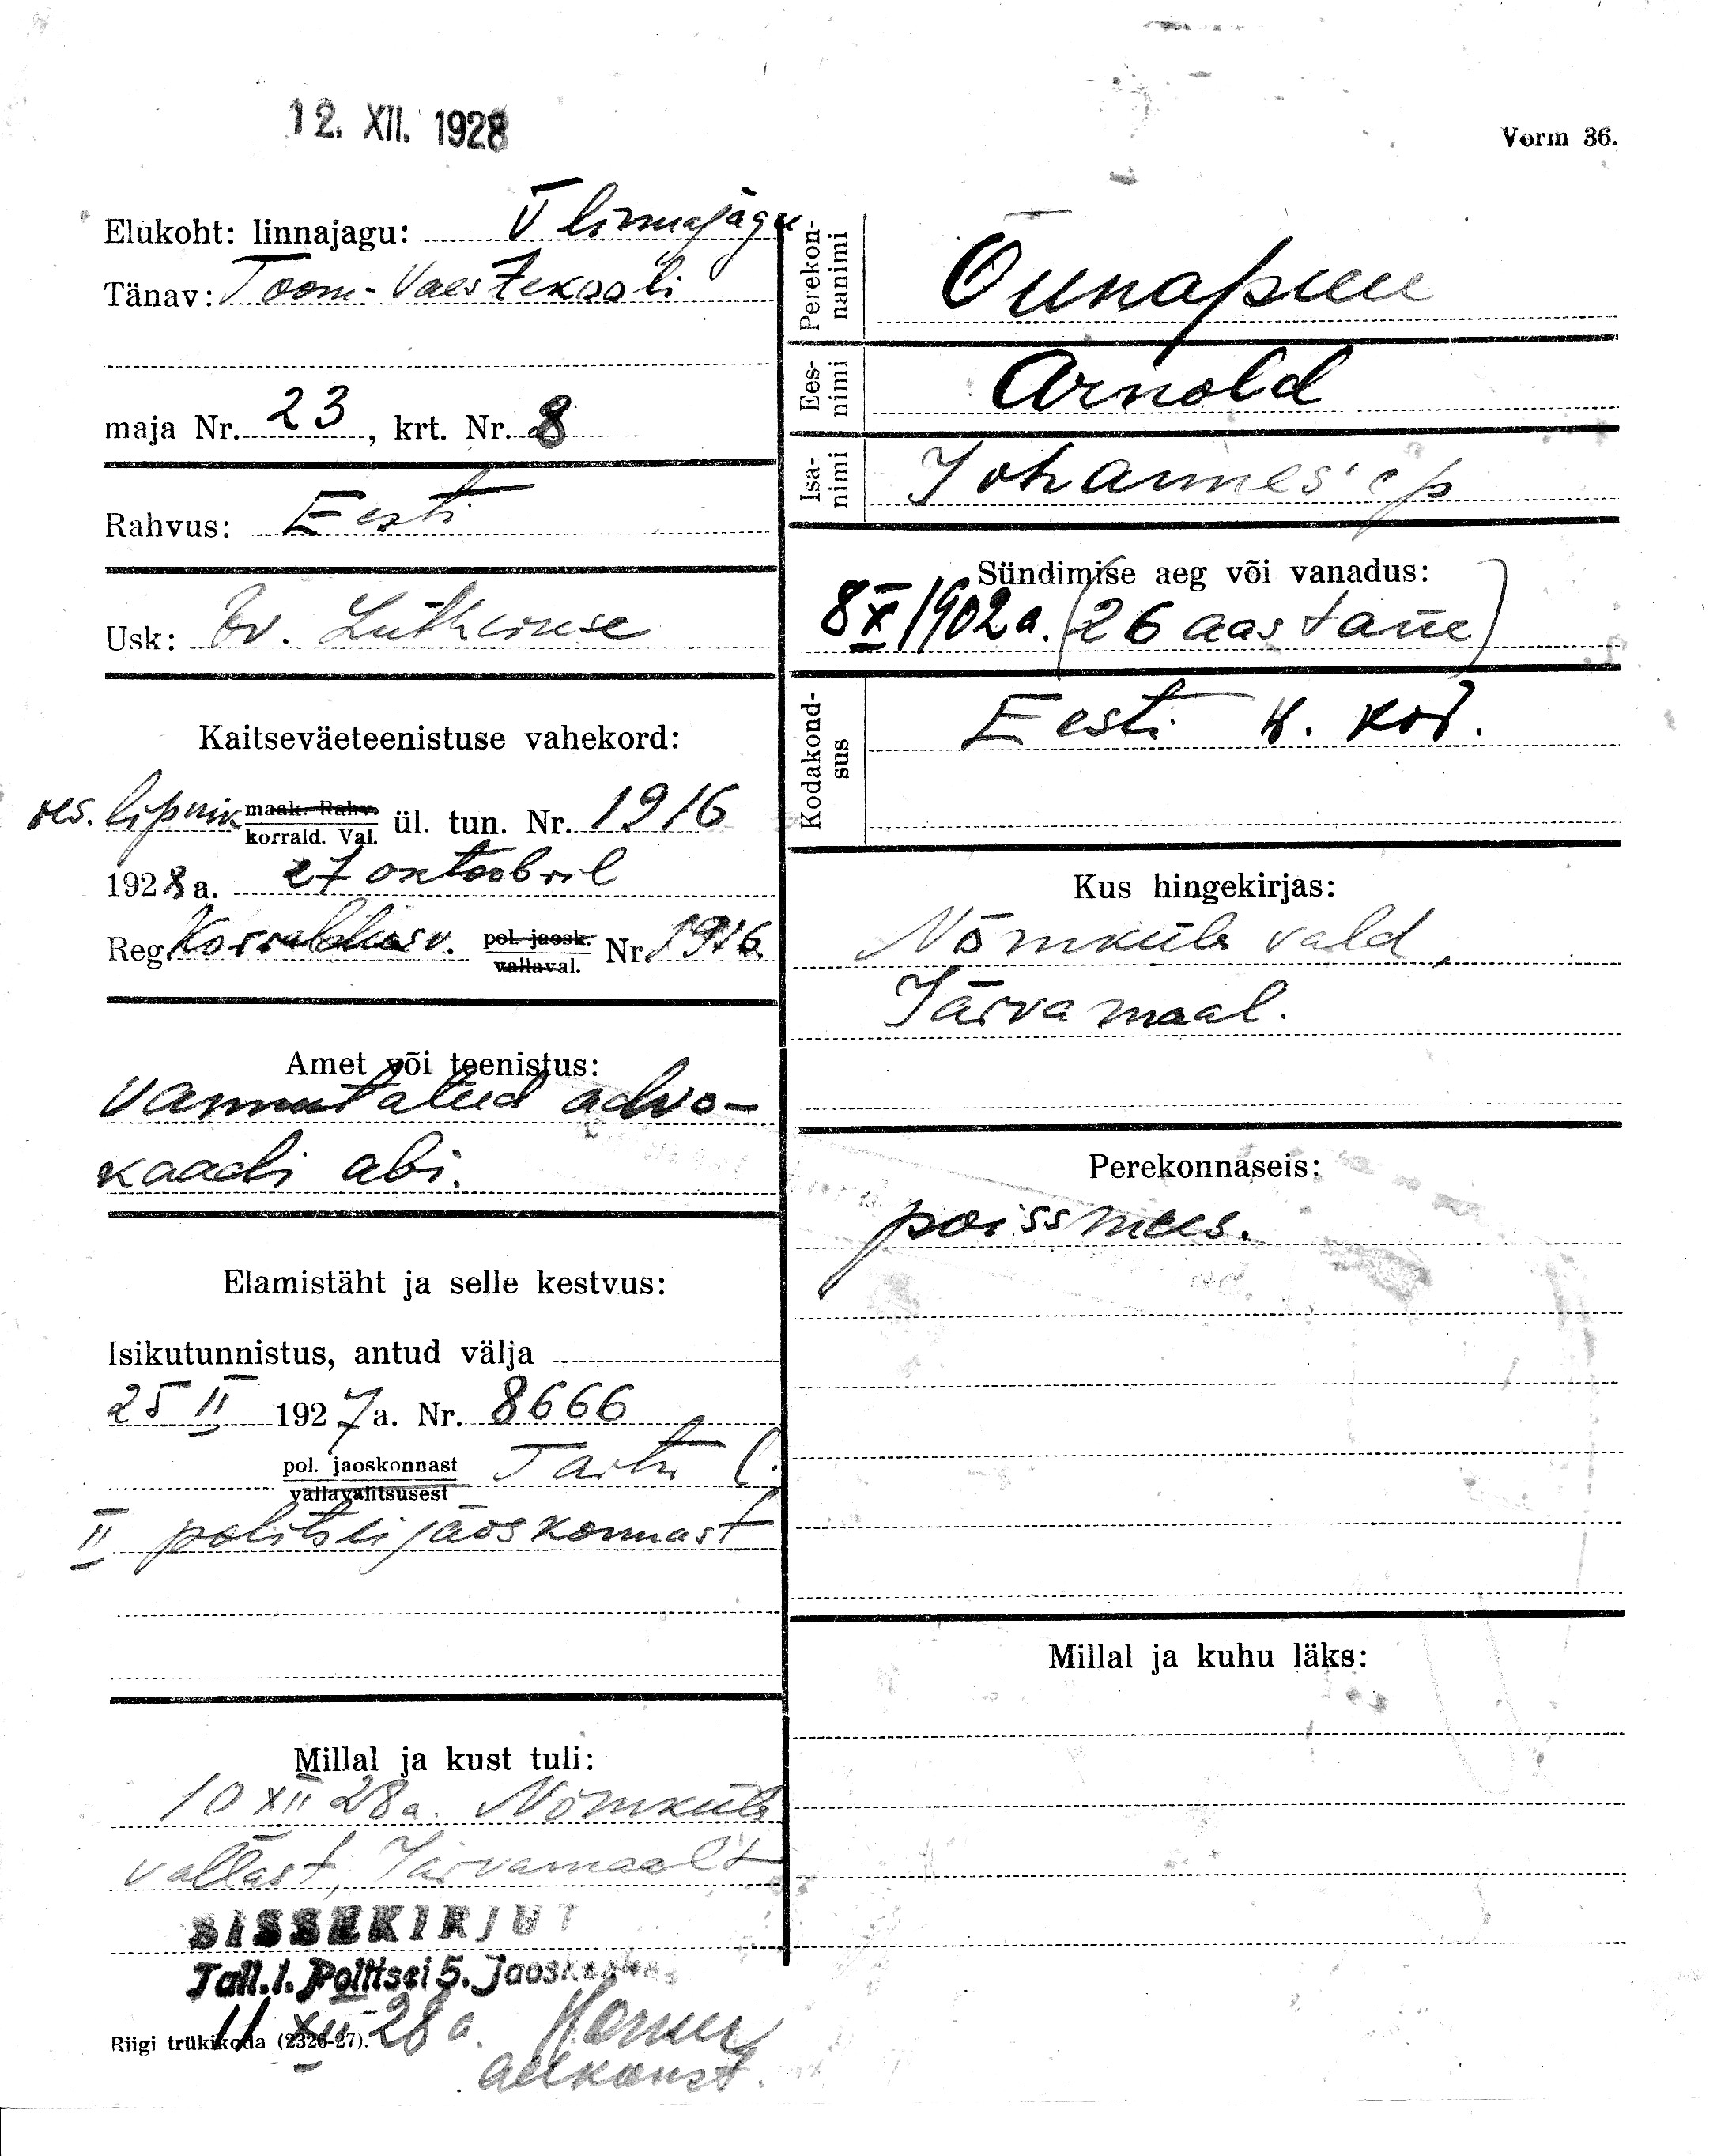 12. XII. 1928
Vorm 36.
Elukoht: linnajagu: V linnajagu
Tänav: Toom-Vaestekooli
maja Nr. 23, krt. Nr. 8
Rahvus: Eesti
Usk: Ev. Lutheruse
Kaitseväeteenistuse vahekord:
res. lipnik maak. Rahv. korrald. Val. ül. tun. Nr. 1916
1928 a. 27 oktoobril
Reg. Korraldusv. pol. jaosk. vallaval. Nr. 1916
Amet või teenistus:
Vannutatud advo-
kaadi abi.
Elamistäht ja selle kestvus:
Isikutunnistus, antud välja
25 II 1927 a. Nr. 8666
pol. jaoskonnast vallavalitsusest Tartu l.
II politseijaoskonnast
Millal ja kust tuli:
10 XII 28 a. Nõmküla
vallast, Järvamaalt
SISSEKIRJUT
Tall. l. Politsei 5. jaoskonnas
11 XII 28 a.
Riigi trükikoda (2326-27).
Perekon-
nanimi Õunapuu
Ees-
nimi Arnold
Isa-
nimi Johannes'e p
Sündimise aeg või vanadus:
8 X 1902 a. (26 aastane)
Kodakond-
sus Eesti v. kod.
Kus hingekirjas:
Nõmküla vald,
Järvamaal.
Perekonnaseis:
poissmees.
Millal ja kuhu läks: